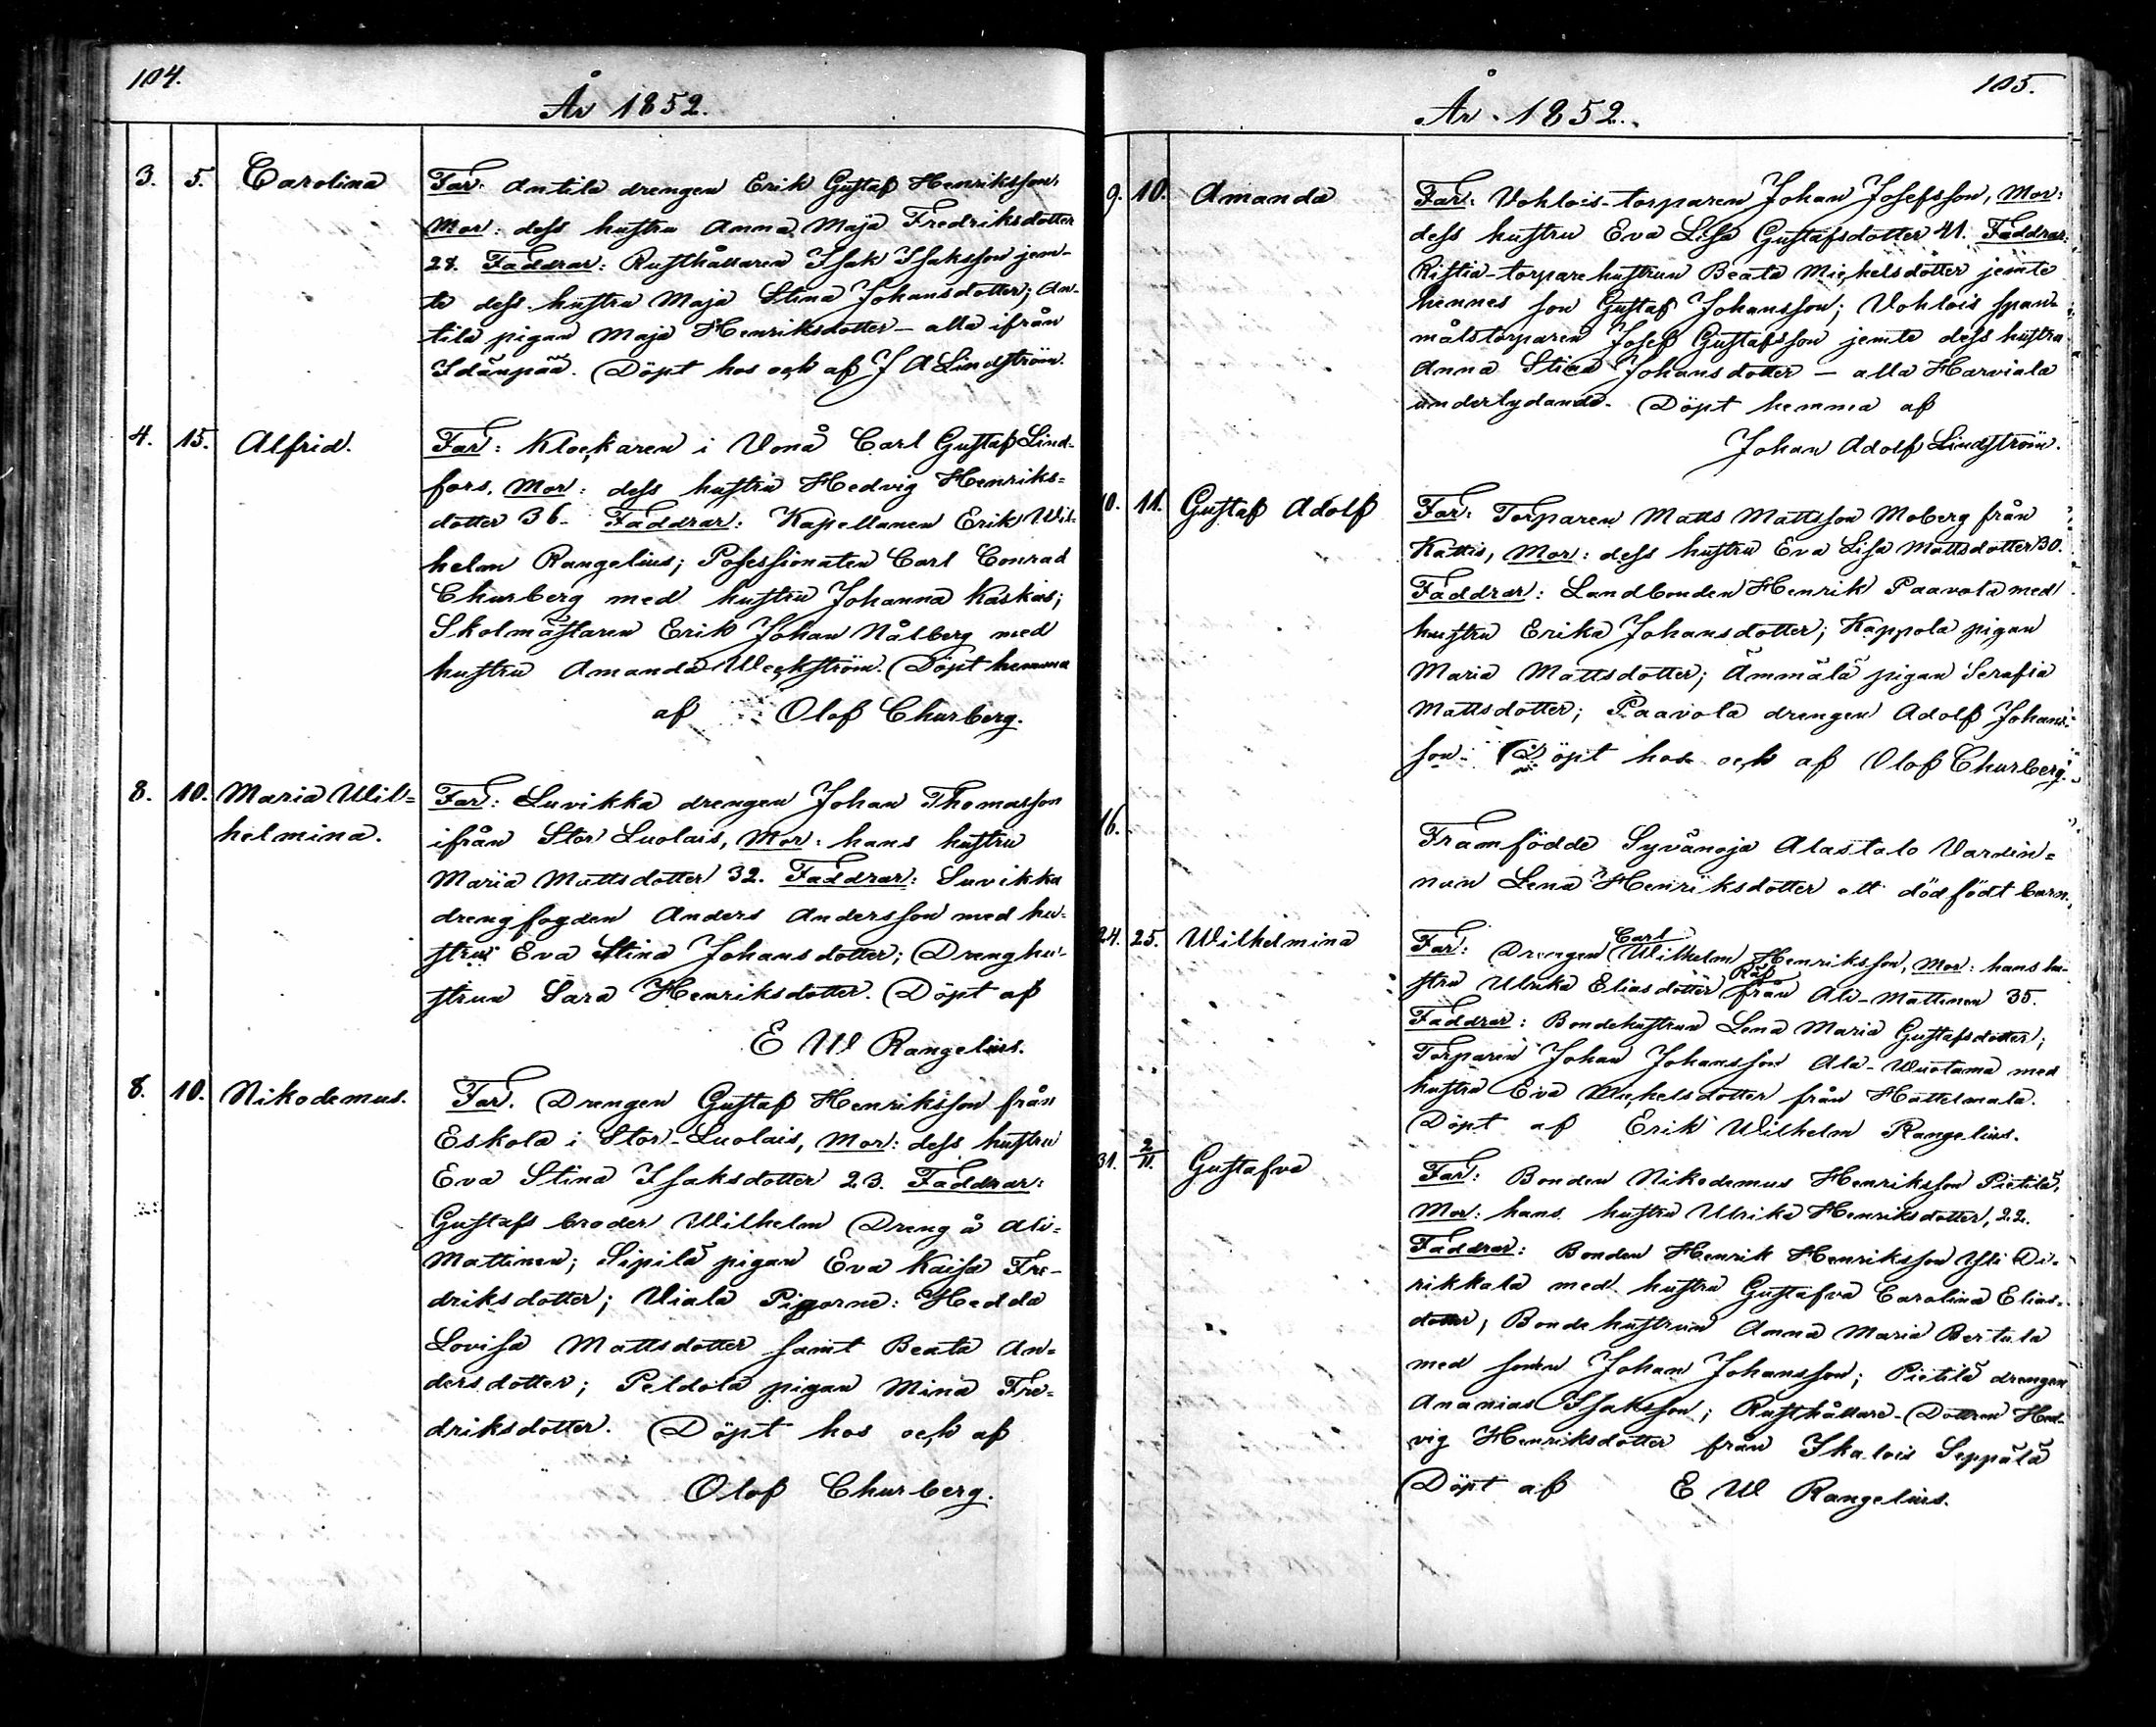 104.
År 1852.
3. 5. Carolina Far: Antila drengen Erik Gustaf Henriksson,
Mor: dess hustru Anna Maja Fredriksdotter
28. Faddrar: Rusthållaren Isak Isaksson jem-
te dess hustru Maja Stina Johansdotter; An-
tila pigan Maja Henriksdotter – alla ifrån
Idänpää. Döpt hos och af J A Lindström.
4. 15. Alfrid. Far: Klockaren i Vonå Carl Gustaf Lind-
fors, Mor: dess hustru Hedvig Henriks=
dotter 36. Faddrar: Kapellanen Erik Wil=
helm Rangelius; Possessionaten Carl Conrad
Churberg med hustru Johanna Kaskas;
Skolmästaren Erik Johan Nålberg med
hustru Amanda Weckström. Döpt hemma
af Olof Churberg.
8. 10. Maria Wil= Far: Luvikka drengen Johan Thomasson
helmina. ifrån Stor Luolais, Mor: hans hustru
Maria Mattsdotter 32. Faddrar: Luvikka
drengfogden Anders Andersson med hu=
stru Eva Stina Johansdotter; Drenghu-
strun Sara Henriksdotter. Döpt af
E W Rangelius.
8. 10. Nikodemus. Far. Drengen Gustaf Henriksson från
Eskola i Stor-Luolais, Mor: dess hustru
Eva Stina Isaksdotter 23. Faddrar:
Gustafs broder Wilhelm Dreng å Ali=
Mattinen; Sipilä pigan Eva Kaisa Fre-
driksdotter; Uiala Pigorna: Hedda
Lovisa Mattsdotter samt Beata An=
dersdotter; Peldola pigan Mina Fre=
driksdotter. Döpt hos och af
Olof Churberg.
105.
År 1852.
9. 10. Amanda Far: Vohlois-torparen Johan Josefsson, Mor:
dess hustru Eva Lisa Gustafsdotter 41. Faddrar:
Ristia-torparehustrun Beata Michelsdotter jemte
hennes son Gustaf Johansson; Vohlois span=
målstorparen Josef Gustafsson jemte dess hustru
Anna Stina Johansdotter – alla Harviala
underlydande. Döpt hemma af
Johan Adolf Lindström.
10. 11. Gustaf Adolf Far: Torparen Matts Mattsson Moberg från
Kattis, Mor: dess hustru Eva Lisa Mattsdotter 30.
Faddrar: Landbonden Henrik Paavola med
hustru Erika Johansdotter; Kappola pigan
Maria Mattsdotter; Ämmälä pigan Serafia
Mattsdotter; Paavola drengen Adolf Johans=
son. Döpt hos och af Olof Churberg.
16. Framfödde Syvänoja Alastalo Vardin=
nan Lena Henriksdotter ett dödfödt barn.
24. 25. Wilhelmina Far: Drengen Carl Wilhelm Henriksson, Mor: hans hu-
stru Ulrika Eliasdotter Räf från Ali-Mattinen 35.
Faddrar: Bondehustrun Lena Maria Gustafsdotter;
Torparen Johan Johansson Ala-Wuotama med
hustru Eva Michelsdotter från Hattelmala.
Döpt af Erik Wilhelm Rangelius.
31. 2/11. Gustafva Far: Bonden Nikodemus Henriksson Pietilä,
Mor: hans hustru Ulrika Henriksdotter, 22.
Faddrar: Bonden Henrik Henriksson Yli Di-
rikkala med hustru Gustafva Carolina Elias=
dotter; Bondehustrun Anna Maria Bertula
med sonen Johan Johansson; Pietilä drengen
Ananias Isaksson; Rusthållare-Dottren Hed-
vig Henriksdotter från Ikalois Seppälä
Döpt af E W Rangelius.